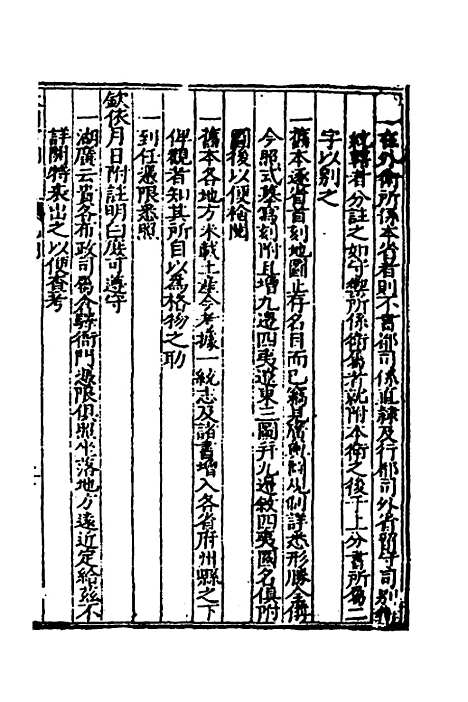 一在外衛所係本省者則不書都司係直隸及行都司外省留守司別
轄者分註之如守禦所係衛屬者就附本衛之後于上分書所屬二
字以別之
一舊本逐省首刻地圖止存名目而已
今照式摹寫刻附且增九邊四夷遼東三圖并九邊敘四夷國名俱附
圖後以便檢閱
一舊本各地方未載土產今考據一統志及諸書增入各省府州縣之下
俾觀者知其所自以為格物之助
一到任憑限悉照
欽依月日附註明白庶可遵守
一湖廣雲貴各布政司屬今時衙門憑限俱照坐落地方遠近定給茲不
詳開特表出之以便查考